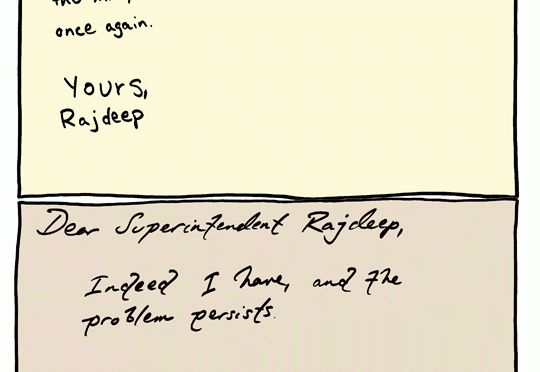 once again.
Yours,
Rajdeep
Dear Superintendent Rajdeep,
Indeed I have, and the
problem persists.